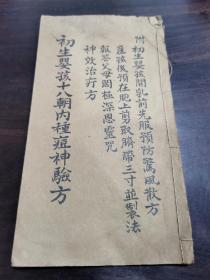 附初生嬰孩開乳前先服預防驚風散方
產孩後預在胞上剪取臍帶三寸並製法
報答父母罔極深恩靈咒
神效治疔方
初生嬰孩十八朝內種痘神驗方